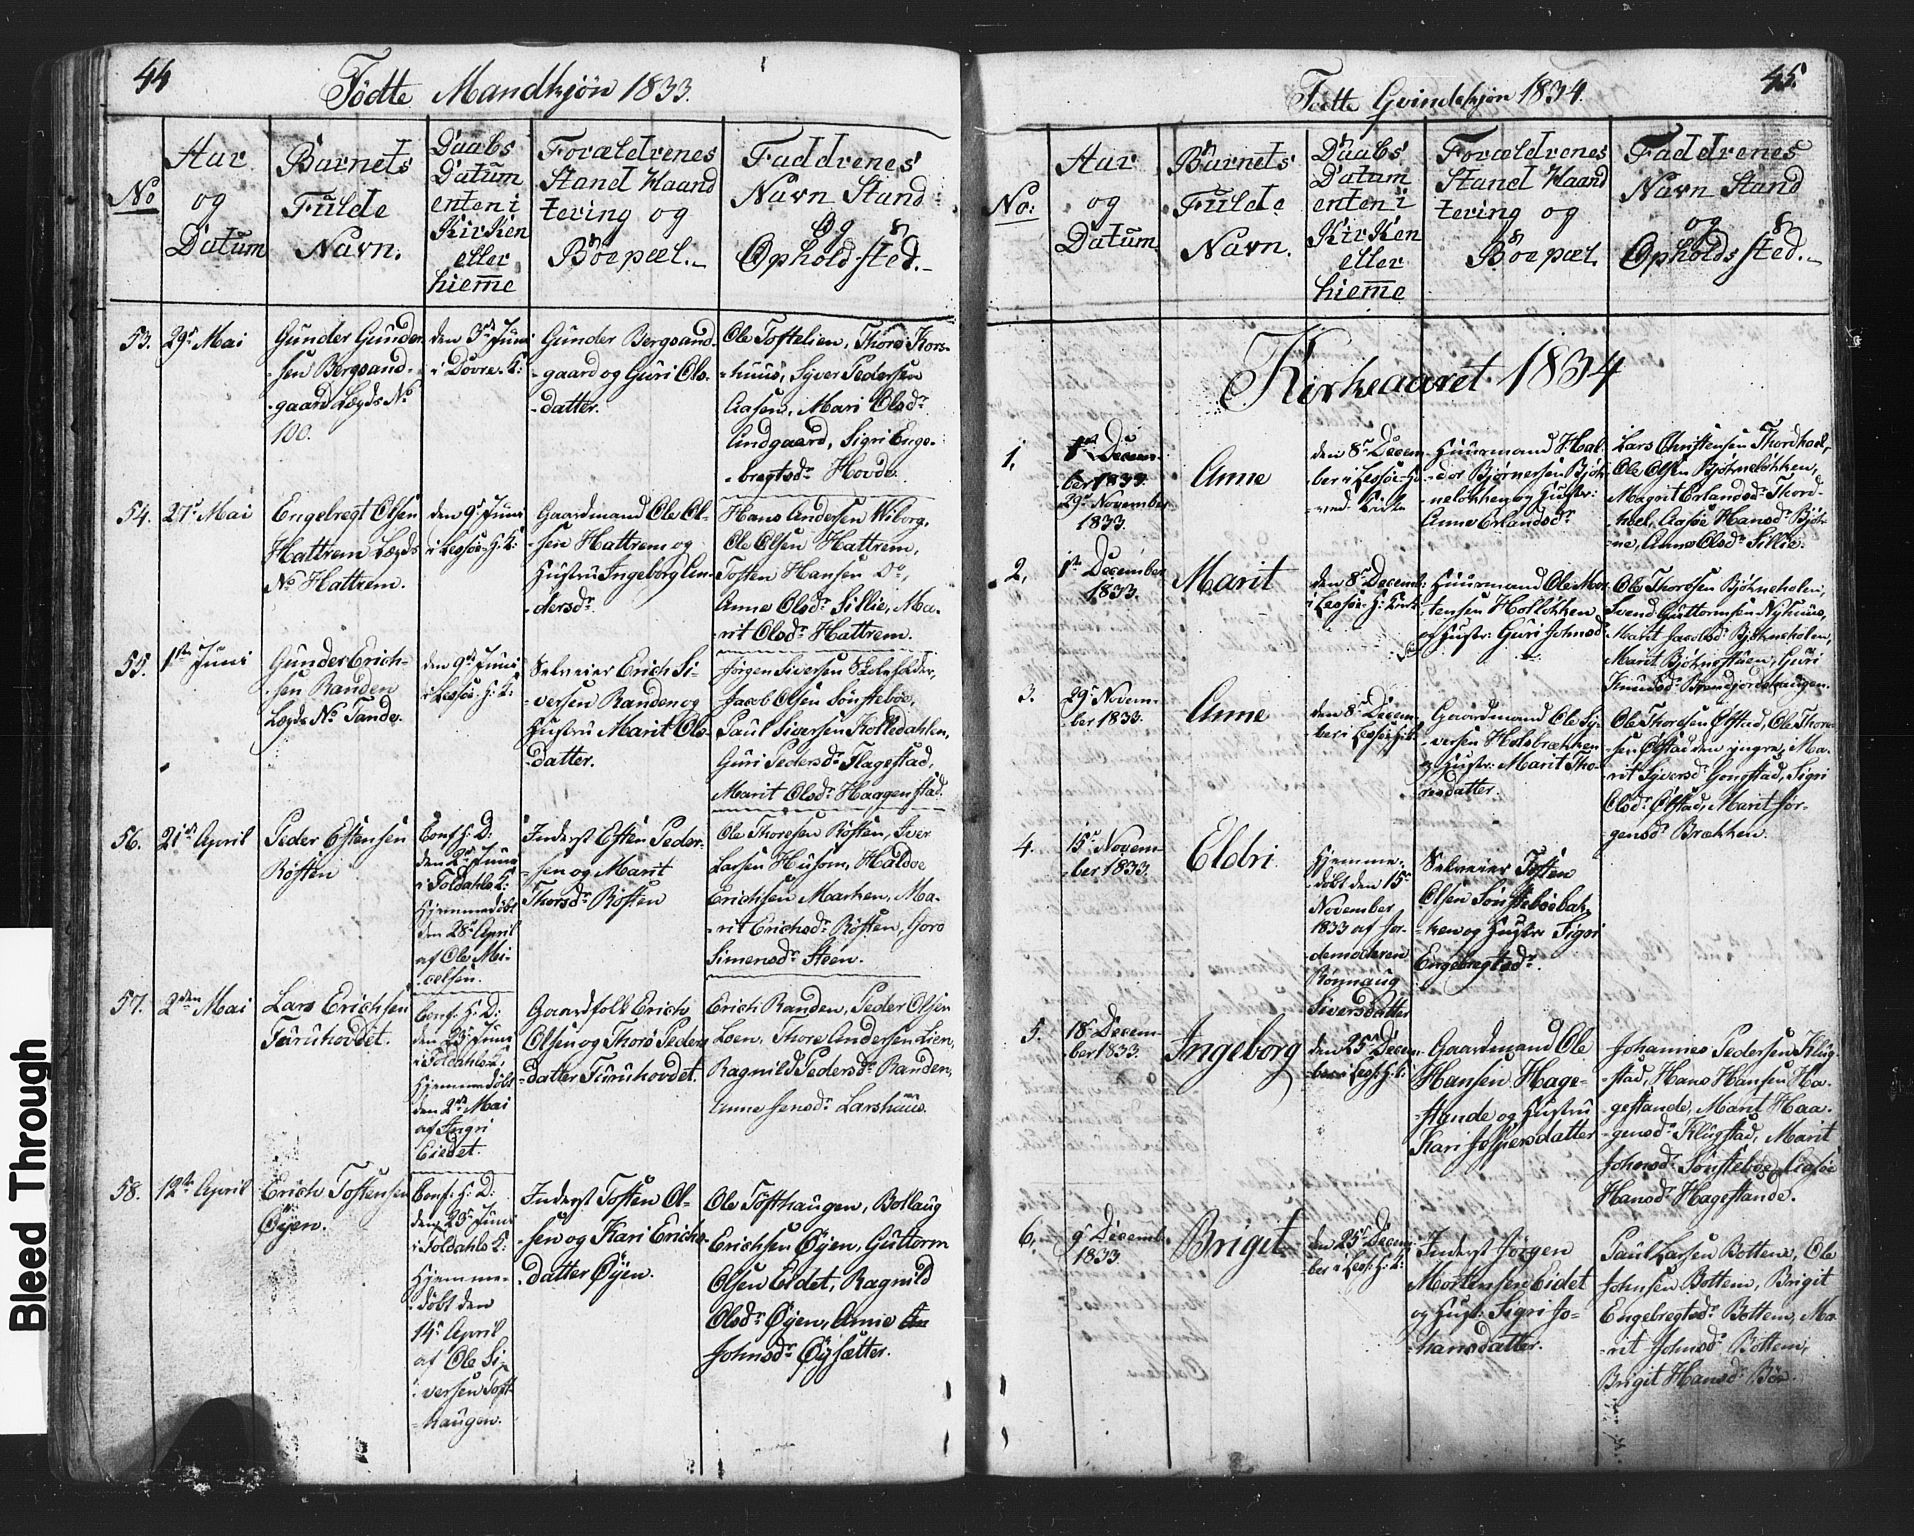 44
Fødte Mandkjøn 1833.
No
Aar
og
Datum
Barnets
Fulde
Navn.
Daabs
Datum
enten i
Kirken
eller
hieme
Forældrenes
Stand Haand
tering og
Boepæl.
Faddrenes
Navn Stand
Og
Ophold sted.
53.
29de Mai
Gunder Gunder-
sen Bergsand-
gaard Lægds No
100.
den 3de Juni
i Dovre K:
Gunder Bergsand
gaard og Guri Ols-
datter.
Ole Toftelien, Thore Kors-
huus, Syver Pedersen
Aasen, Mari Olsdr
Lindgaard, Sigri Enge-
bregtsdr Hovde.
54.
27de Mai
Engebregt Olsen
Hattrem Lægds
No Hattrem.
den 9de Juni
i Lessøe H: K:
Gaardmand Ole Ol-
sen Hattrem og
Hustru Ingeborg An-
dersdr
Hans Andersen Wiborg,
Ole Olsen Hattrem,
Tosten Hansen Do,
Anne Olsdr Sillie, Ma-
rit Olsdr Hattrem.
55.
1ste Juni
Gunder Erich-
sen Randen
Lægds No Tande.
den 9de Juni
i Lessøe H: K:
Selveier Erich Si-
versen Randen og
Hustru Marit Ols-
datter.
Jørgen Siversen
Jacob Olsen Sønsteboe,
Paul Siversen Kolledahlen,
Guri Pedersdr Flagestad,
Marit Olsdr Haagenstad.
56.
21de April
Peder Estensen
Røsten
Conf: H: D:
den 25 Juni
i Foldahls K:
Hjemmedøbt
den 28de April
af Ole Mi-
celsen.
Inderst Esten Peder-
sen og Marit
Thorsdr Røsten
Ole Thoresen Røsten, Iver
Larsen Husom, Haldoe
Erichsen Marken, Ma-
rit Erichsdr Røsten, Goro
Simensdr Steen.
57.
2den Mai
Lars Erichsen
Furuhovdet.
Conf: H: D:
den 25 Juni
i Foldahls K:
Hjemmedøbt
den 2den Mai
af Ingri
Eiedet.
Gaardfolk Erich
Olsen og Thorø Peders
datter Furuhovdet.
Erich Randen, Peder Olsen
Loen, Thore Andersen Lien,
Ragnild Pedersdr Randen,
Anne Jensdr Larshuus.
58.
12te April
Erich Tostensen
Øyen.
Conf: H: D:
den 25 Juni
i Foldahls K:
Hjemme-
døbt den
14de April
af Ole Si-
versen Toft-
haugen.
Inderst Tosten Ol-
sen og Kari Erichs-
datter Øyen.
Ole Tofthaugen, Bollaug
Erichsen Øyen, Guttorm
Olsen Eidet, Ragnild
Olsdr Øyen, Anne
Johnsdr Øysætter.
45.
Fødte Qvindekjøn 1834.
No:
Aar
og
Datum
Barnets
Fulde
Navn.
Daabs
Datum
enten i
Kirken
eller
hieme
Forældrenes
Stand Haand
tering og
Boepæl.
Faddrenes
Navn Stand
og
Opholds sted.
Kirkeaaret 1834
1,
1ste Decem-
ber 1833.
29de November
1833.
Anne
den 8de Decem-
ber i Lessøe Ho-
ved Kirke
Huusmand Hal-
dor Bjørnersen Bjøk-
neløkken og Hustr:
Anne Erlandsdr
Lars Christensen Thordhoel,
Ole Olsen Bjøkneløkken,
Magrit Erlandsdr Thord-
hoel, Aasøe Hansdr Bjøk-
ne, Anne Olsdr Sillie.
2,
1ste December
1833.
Marit
den 8de Decemb:
i Lessøe H: Kirk
Huusmand Ole Mor-
tensen Holløkken
og Hustr: Guri Johnsdr
Ole Thoresen Bjøkneholen,
Svend Guttormsen Nyhuus,
Marit Jacobsdr Bjøkneholen,
Marit Bjøknestuen, Guri
Knudsdr
3.
29de Novem-
ber 1833.
Anne
den 8de Decem-
ber i Lessøe H: K:
Gaardmand Ole Sy-
versen Holsbrækken
og Hustr: Marit Tho-
resdatter.
Ole Thoresen Ølstad, Ole Thore-
sen Ølstad den yngre, Ma-
rit Syversdr Gongstad, Sigri
Olsdr Ølstad, Marit Jør-
gensdr Brækken.
4.
15de Novem-
ber 1833.
Eldri
Hjemme-
døbt den 15de
November
1833 af Jor-
demoderen
Rønnaug
Siversdatter
Selveier Tosten
Olsen Sønsteboebak-
ken og Hustr Sigri
Engebregtsdr.
5.
18de Decem-
ber 1833.
Ingeborg
den 25de Decem-
ber i Less: H: K:
Gaardmand Ole
Hansen Hage-
stande og Hustru
Kari Jespersdatter
Johannes Pedersen Klug-
stad, Hans Hansen Ha-
gestande, Marit Haa-
gensdr Klugstad, Marit
Johnsdr Sønsteboe, Aasøe
Hansdr Hagestande.
6,
9de Decemb-
1833.
Brigit
den 25de Decem-
ber i Less: H: K:
Inderst Jørgen
Mortensen Eidet
og Hust: Sigri Jo-
hansdatter.
Paul Larsen Bottem, Ole
Johnsen Bottem, Brigit
Engebregtsdr Bottem, Ma-
rit Johnsdr Bottem,
Brigit Hansdr Bøe.
Bleed Through